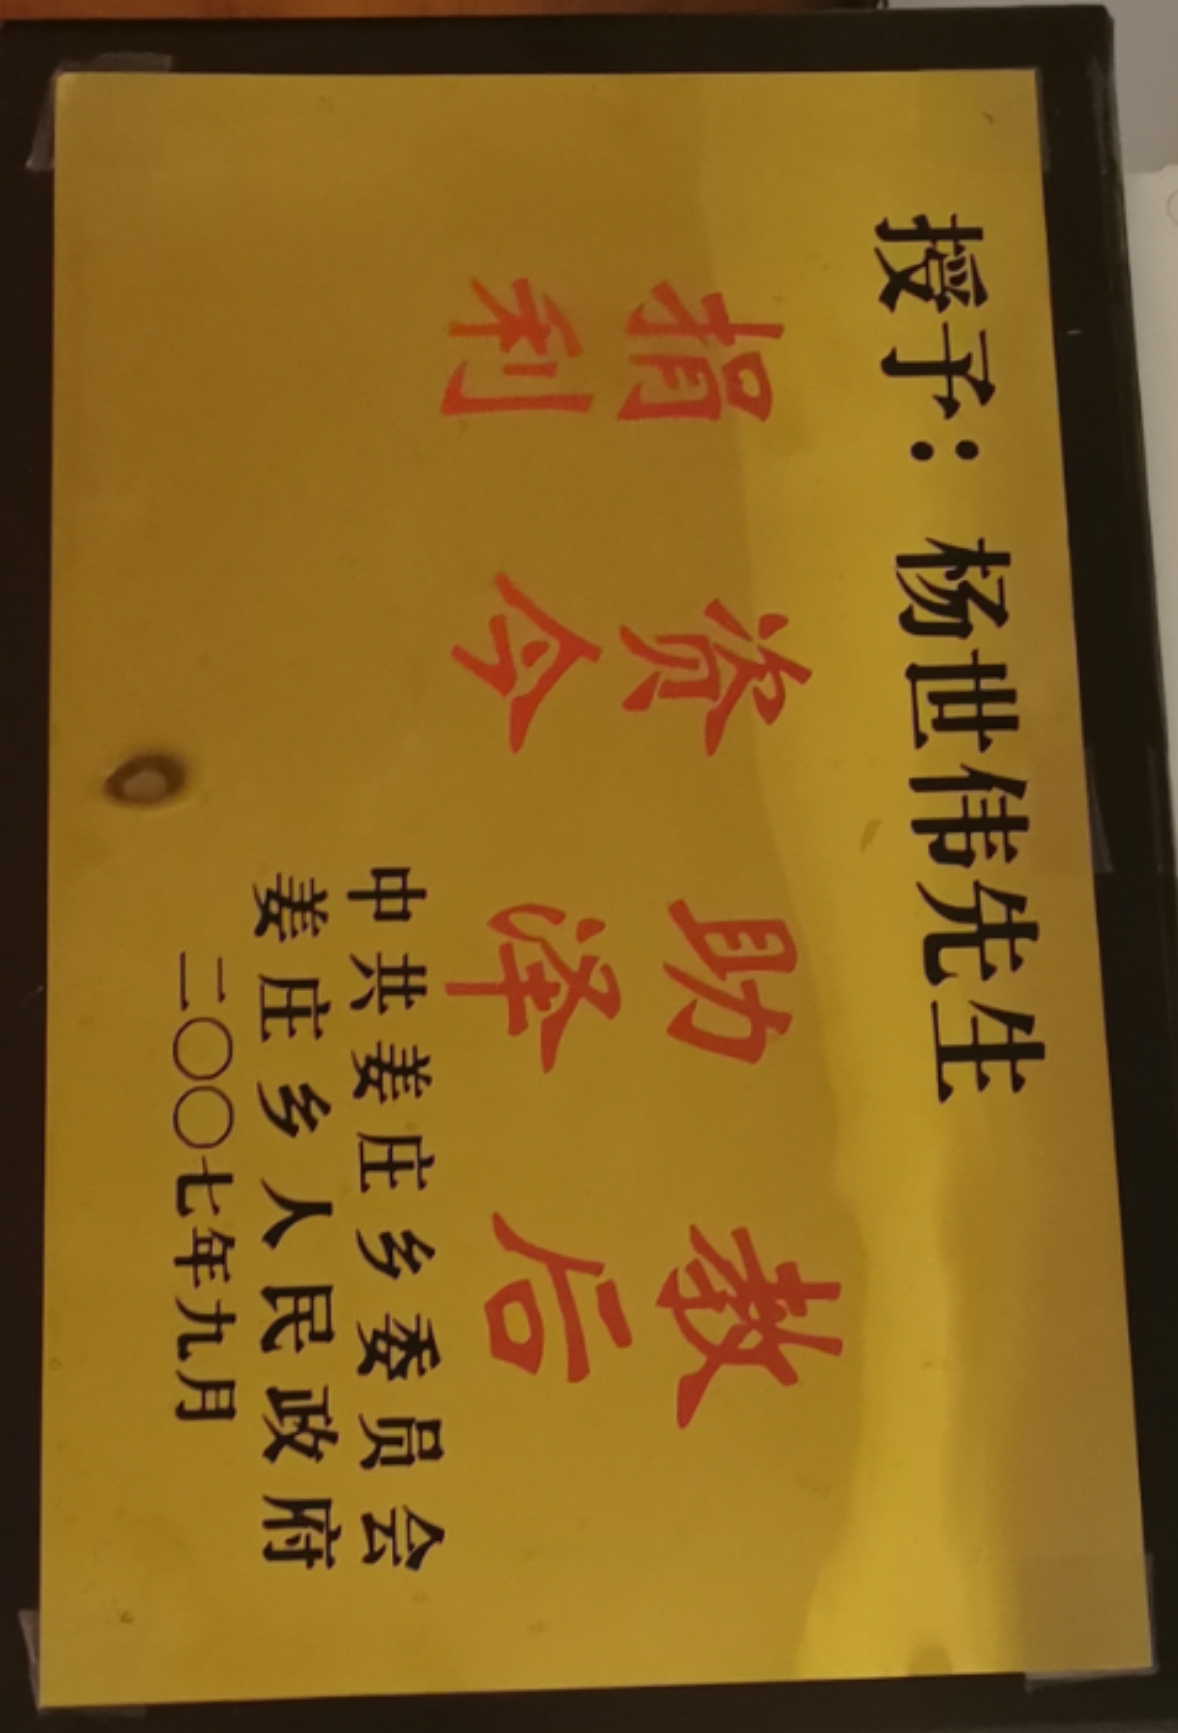 授予：杨世伟先生
捐资助教
利今泽后
中共姜庄乡委员会
姜庄乡人民政府
二〇〇七年九月